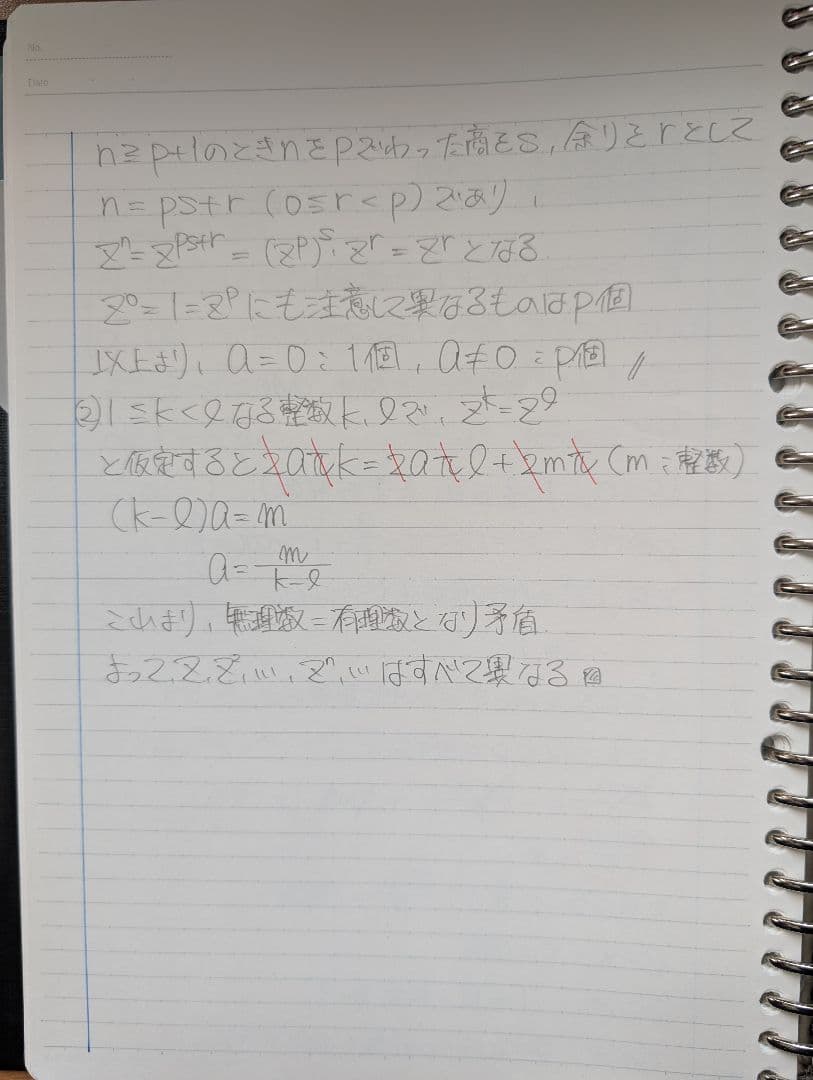 No.
Date
n≧p+1のときnをpでわった商をs, 余りをrとして
n=ps+r (0≦r<p)であり,
zⁿ=z^{ps+r}=(z^p)^s・z^r=z^rとなる
z⁰=1=z^pにも注意して異なるものはp個
以上より, a=0:1個, a≠0:p個 //
(2) 1≦k<lなる整数k, lで, z^k=z^l
と仮定すると2aπk=2aπl+2mπ (m:整数)
(k-l)a=m
a=m/(k-l)
これより, 無理数=有理数となり矛盾
よってz, z², …, zⁿ, …はすべて異なる